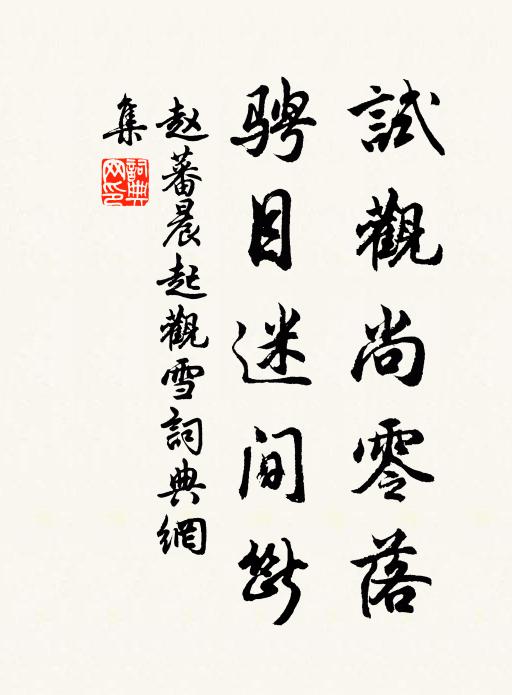 試觀尚零落
骋目迷间斷
赵蕃晨起觀雪詞典網
集
詞典网印